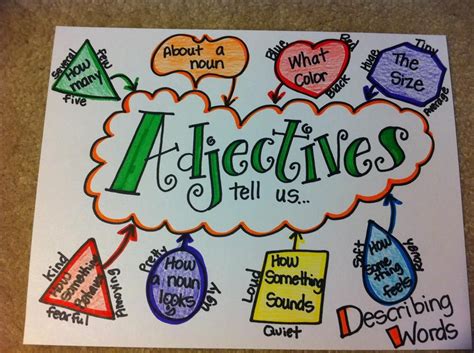 Several
few
How
many
five
About a
noun
Blue
Red
What
Color
Black
Huge
Tiny
The
Size
Average
Adjectives
tell us...
Kind
How
Something
Behaves
Annoying
fearful
Pretty
How
a noun
looks
Ugly
Loud
How
Something
Sounds
Quiet
Soft
How
some
thing
feels
Rough
Describing
Words